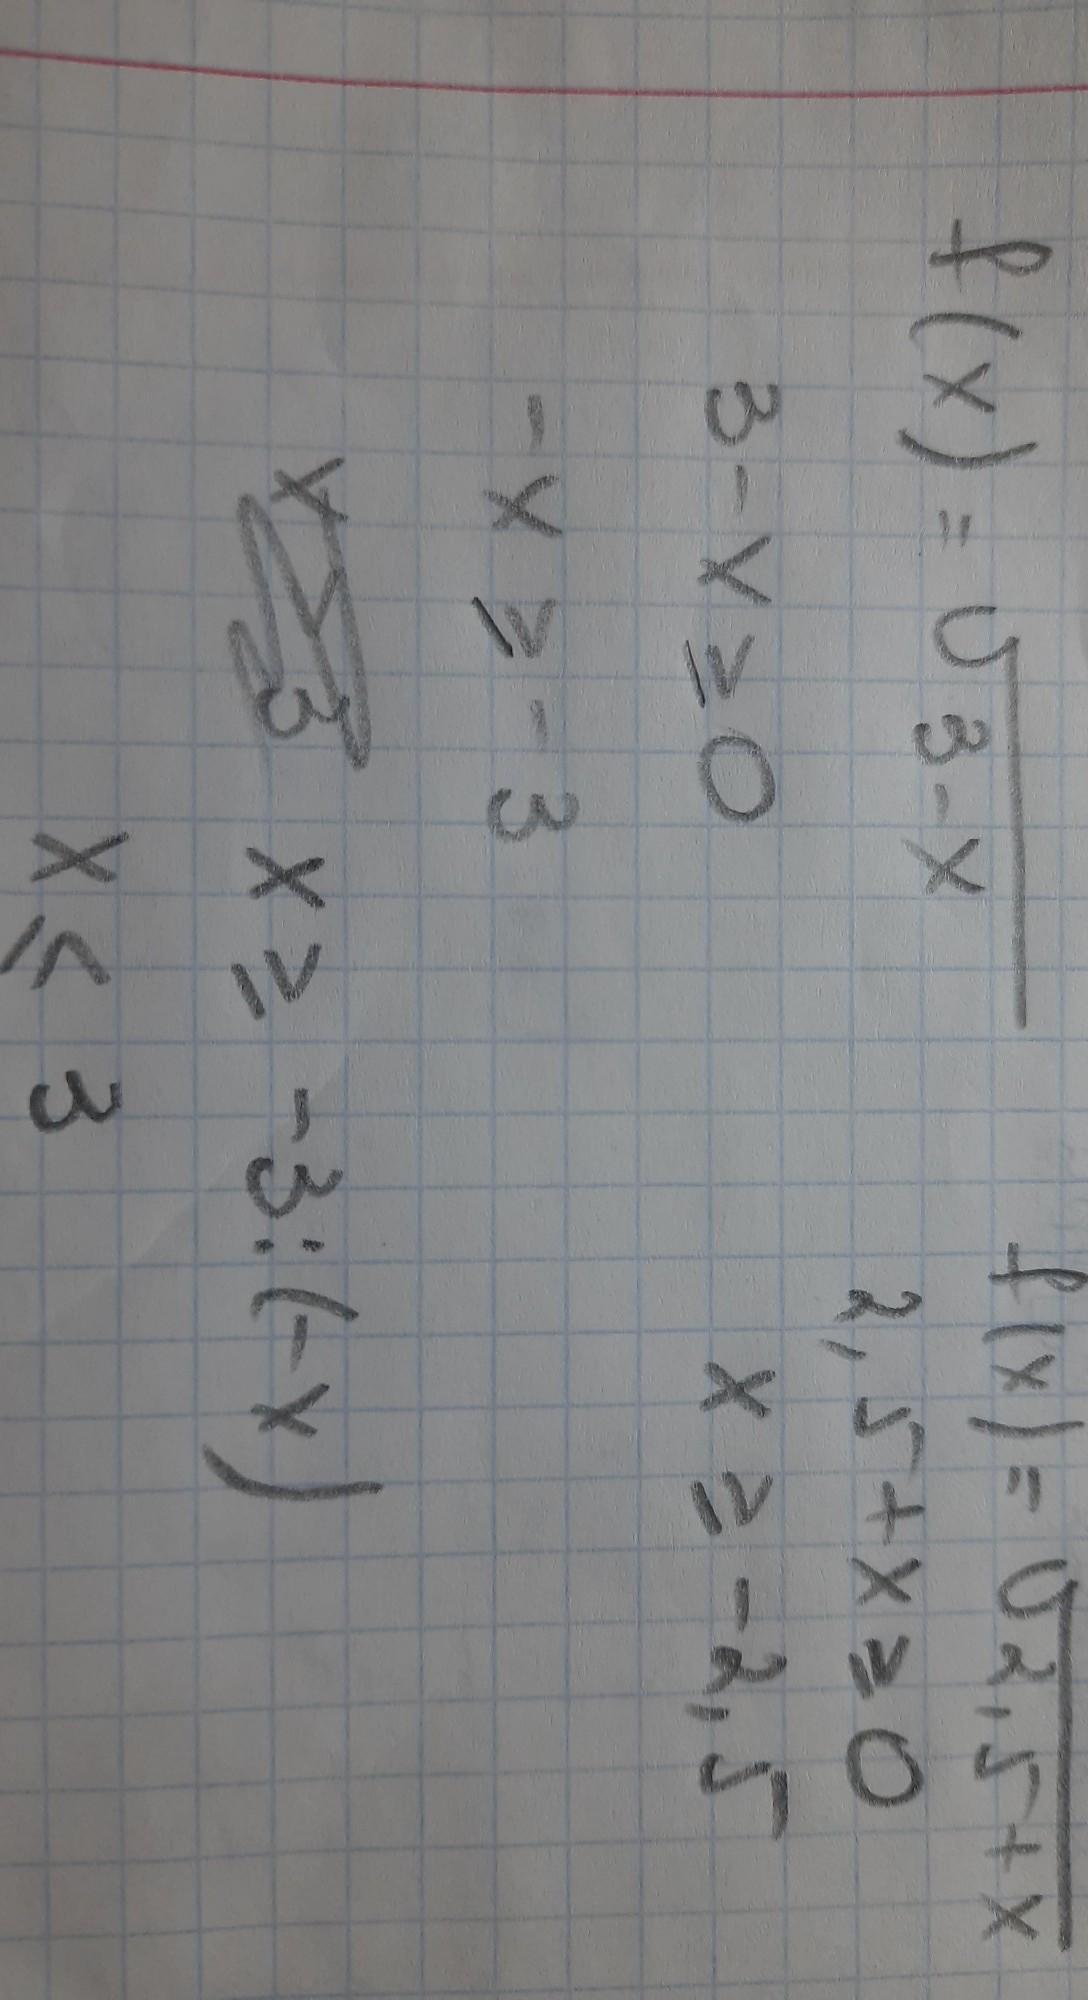 f(x) = √3-x
3-x ≥ 0
-x ≥ -3
x ≥ -3:(-x)
x ≤ 3
f(x) = √2,5+x
2,5+x ≥ 0
x ≥ -2,5